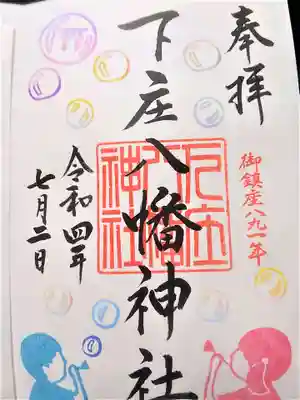 奉拝
御鎮座八九一年
下庄八幡神社
下庄
八幡
神社
令和四年
七月二日